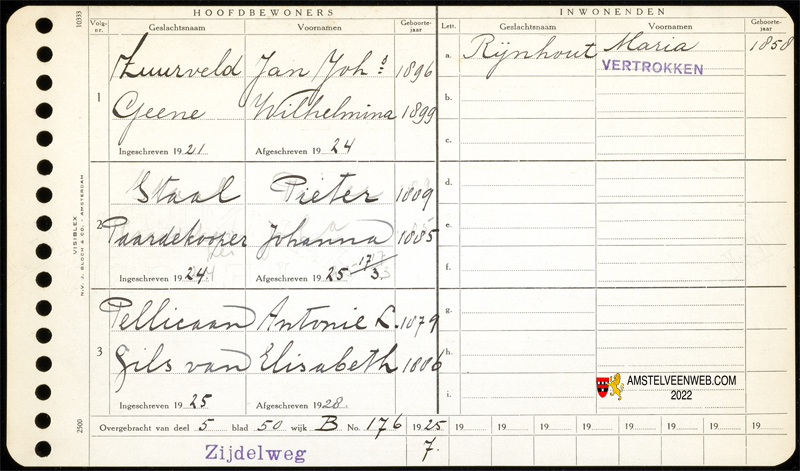 HOOFDBEWONERS
INWONENDEN
Volg-nr. Geslachtsnaam Voornamen Geboorte-jaar
Lett. Geslachtsnaam Voornamen Geboorte-jaar
10333
1
Zuurveld Jan Joh.s 1896
Geene Wilhelmina 1899
Ingeschreven 1921 Afgeschreven 1924
2
Staal Pieter 1889
Paardekooper Johanna 1885
Ingeschreven 1924 Afgeschreven 1925 17/3
3
Pellicaan Antonie L. 1879
Gils van Elisabeth 1886
Ingeschreven 1925 Afgeschreven 1928
a. Rijnhout Maria 1858
VERTROKKEN
b.
c.
d.
e.
f.
g.
h.
i.
VISIBLEX
N.V. J. BLOCH & CO. - AMSTERDAM
2500
AMSTELVEENWEB.COM
2022
Overgebracht van deel 5 blad 50 wijk B No. 176 1925 19 19 19 19 19 19 19 19
7.
Zijdelweg